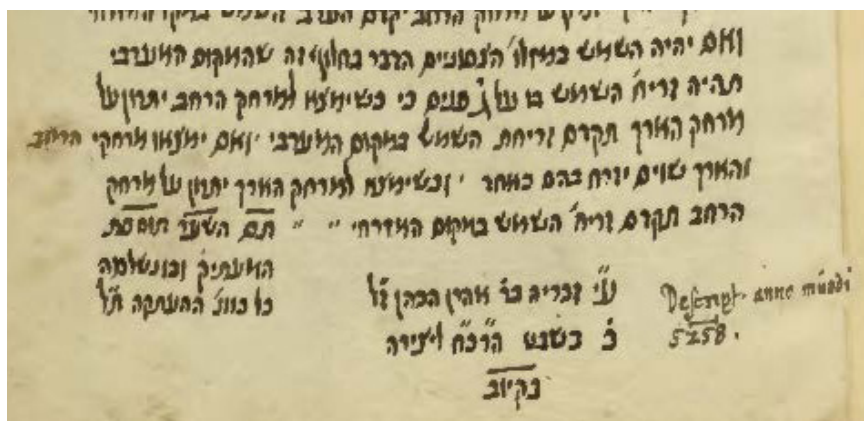 הרחב יקדם הערב השמש
ואם יהיה השמש במזלו' הצפוניים הדבר בחלוף זה שהמקום המערבי
תהיה זריח' השמש בו על ג' פנים כי כשימצא למרחק הרחב יתרון על
מרחק הארך תקדם זריחת השמש במקום המערבי ' ואם ימצאו מרחקי הרחב
והארך שוים יזרח בהם כאחד ' וכשימצא למרחק הארך יתרון על מרחק
הרחב תקדם זריח' השמש במקום המזרחי " " תם השער תוספת
המעתיק ובו נשלמה
כל כוונ' ההעתקה ת"ל
ע"י זכריה בר' אהרן הכהן ז"ל
כ' בשבט ה'רנ"ח ליצירה
בקיוב
Descript. anno mundi
5258.